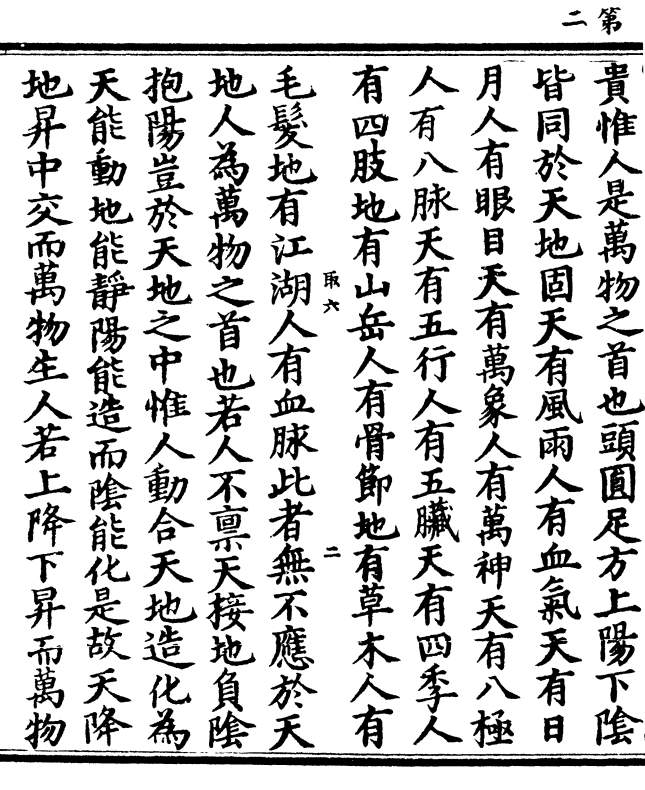 第二
貴惟人是萬物之首也頭圎足方上陽下陰
皆同於天地固天有風雨人有血氣天有日
月人有眼目天有萬象人有萬神天有八極
人有八脉天有五行人有五臟天有四季人
有四肢地有山岳人有骨節地有草木人有
取六
二
毛髮地有江湖人有血脉此者無不應於天
地人為萬物之首也若人不禀天接地負陰
抱陽豈於天地之中惟人動合天地造化為
天能動地能靜陽能造而陰能化是故天降
地昇中交而萬物生人若上降下昇而萬物